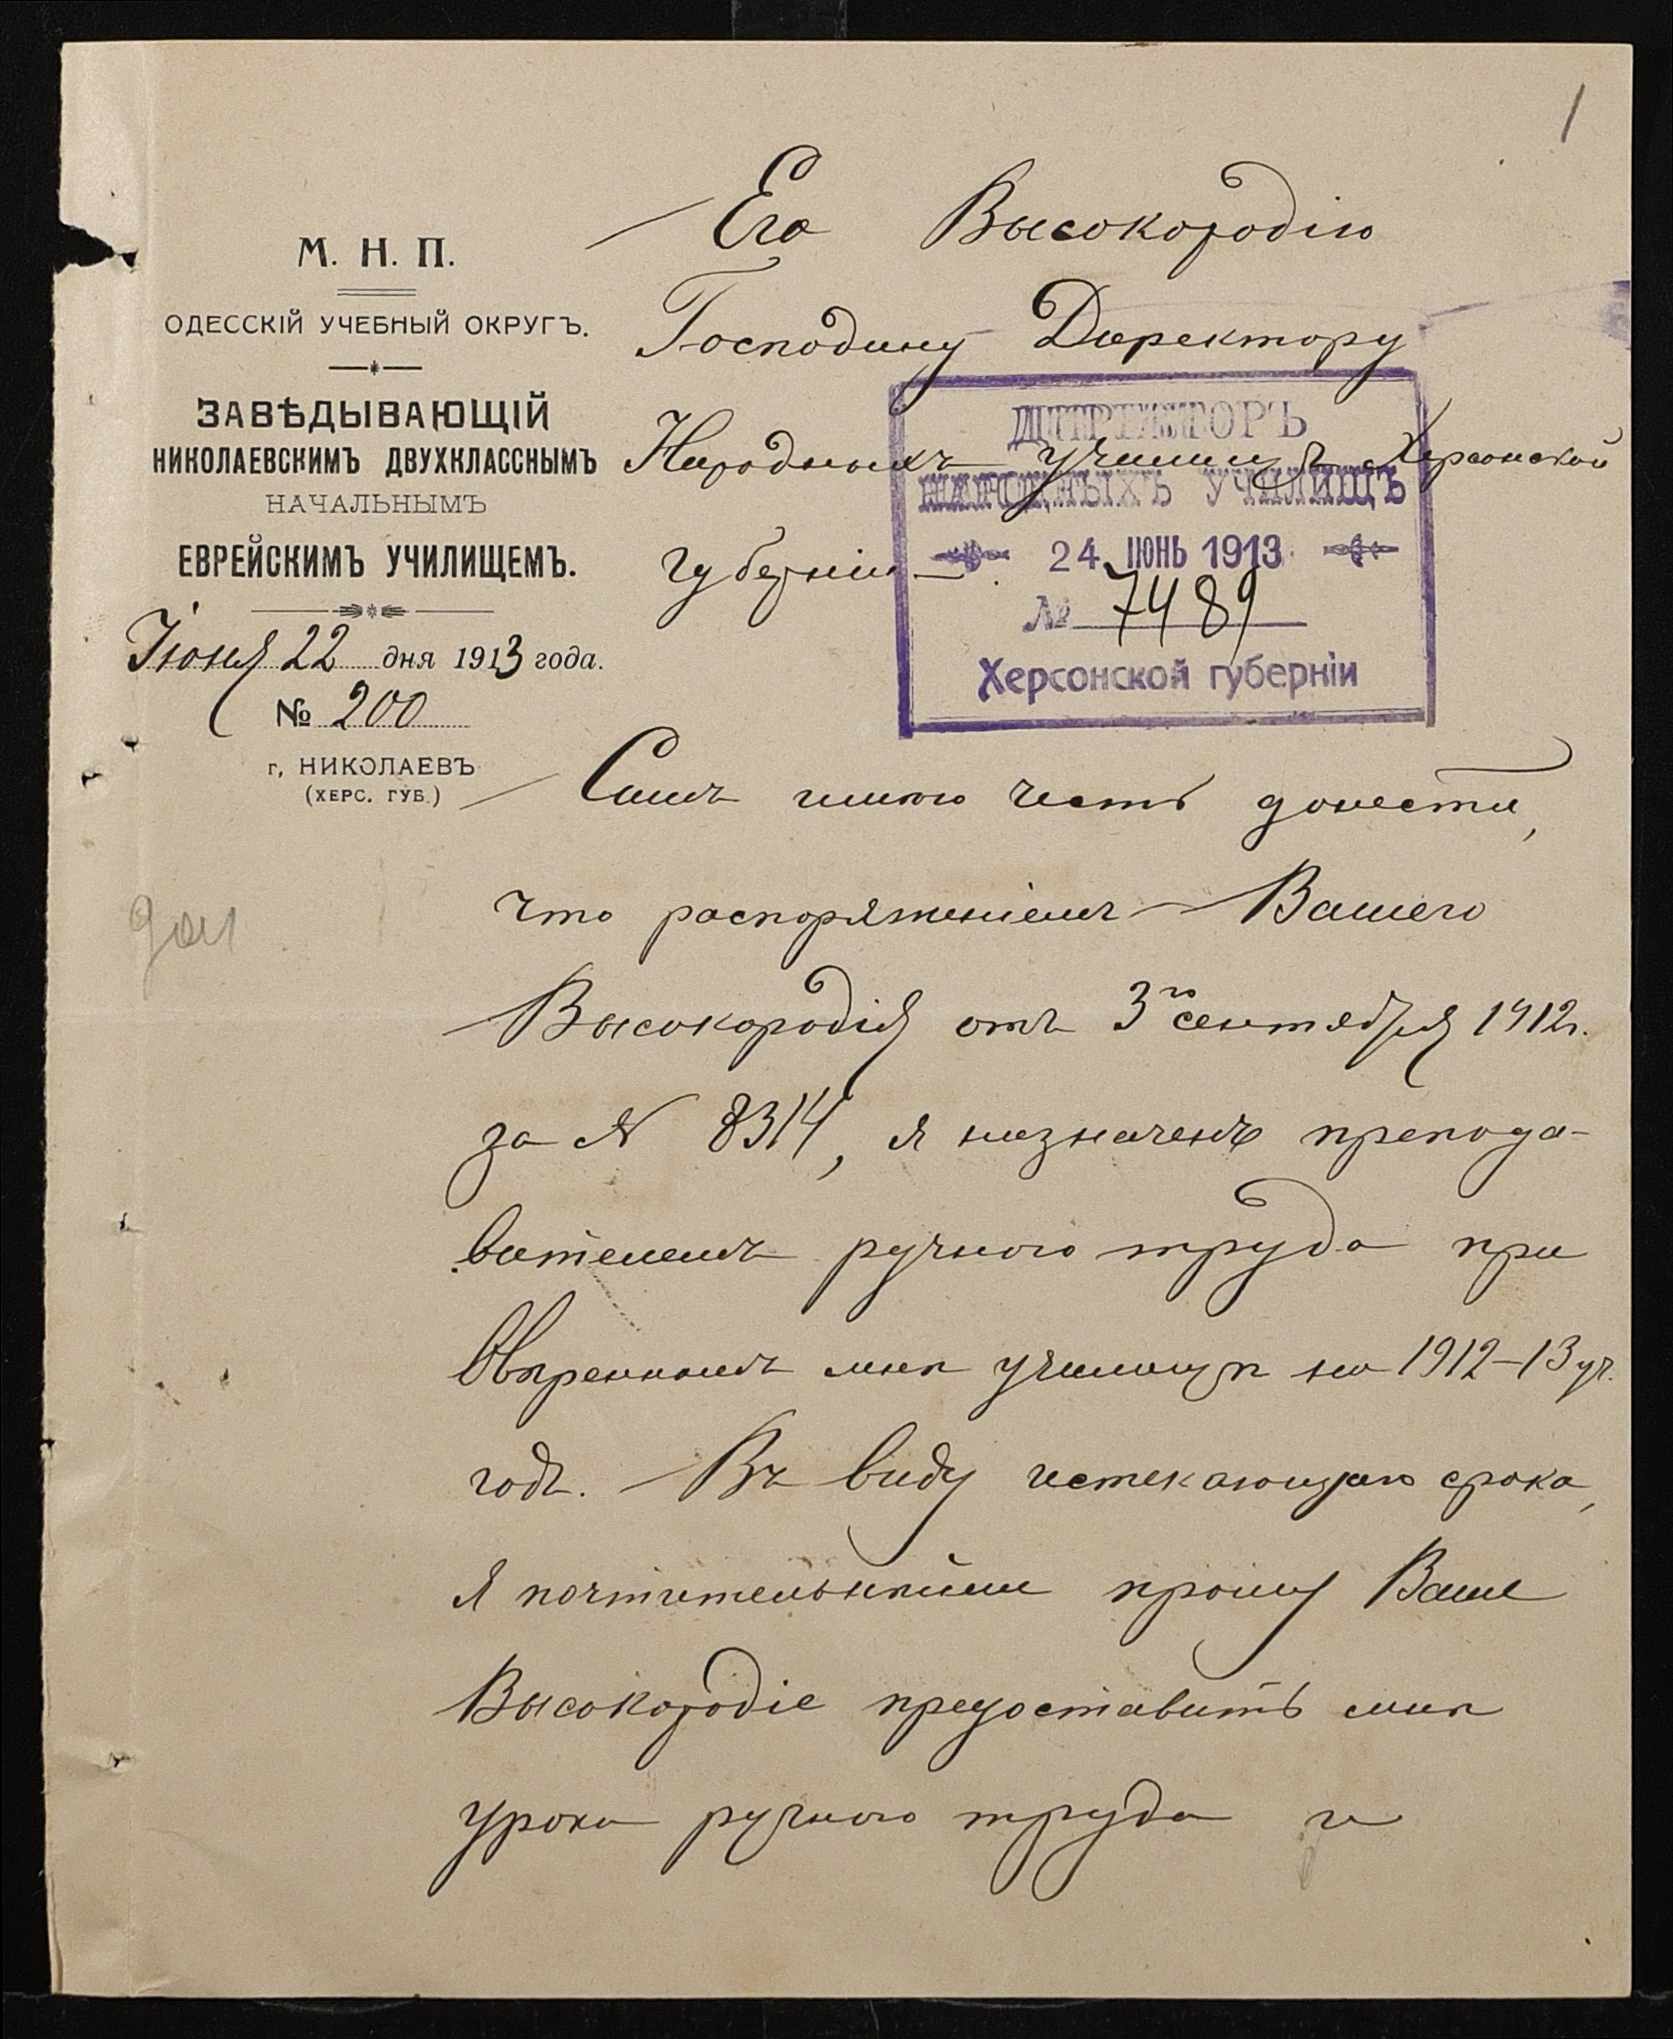 1
М. Н. П.
ОДЕССКІЙ УЧЕБНЫЙ ОКРУГЪ.
ЗАВѢДЫВАЮЩІЙ
НИКОЛАЕВСКИМЪ ДВУХКЛАССНЫМЪ
НАЧАЛЬНЫМЪ
ЕВРЕЙСКИМЪ УЧИЛИЩЕМЪ.
Іюня 22 дня 1913 года.
№ 200
г, НИКОЛАЕВЪ
(ХЕРС. ГУБ.)
Его Высокородію
Господину Директору
Народныхъ училищъ Херсонской
губерніи
ДИРЕКТОРЪ
НАРОДНЫХЪ УЧИЛИЩЪ
24 ІЮНЬ 1913
№ 7489
Херсонской губерніи
Симъ имѣю честь донести,
что распоряженіемъ Вашего
Высокородія отъ 3го сентября 1912г.
за № 8314, я назначенъ препода-
вателемъ ручного труда при
ввѣренномъ мнѣ училищѣ на 1912-13 уч.
годъ. Въ виду истекающаго срока,
я почтительнѣйше прошу Ваше
Высокородіе предоставить мнѣ
уроки ручного труда и